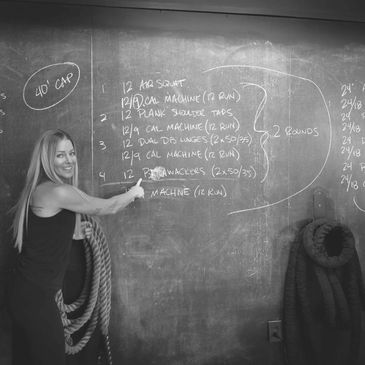 40' CAP
1 12 AIR SQUAT
12/9 CAL MACHINE (12 RUN)
2 12 PLANK SHOULDER TAPS
12/9 CAL MACHINE (12 RUN)
3 12 DUAL DB LUNGES (2x50/35)
12/9 CAL MACHINE (12 RUN)
4 12 (2x50/35)
MACHINE (12 RUN)
2 ROUNDS
24
24/18
24
24/18
24
24/18
24
24/18